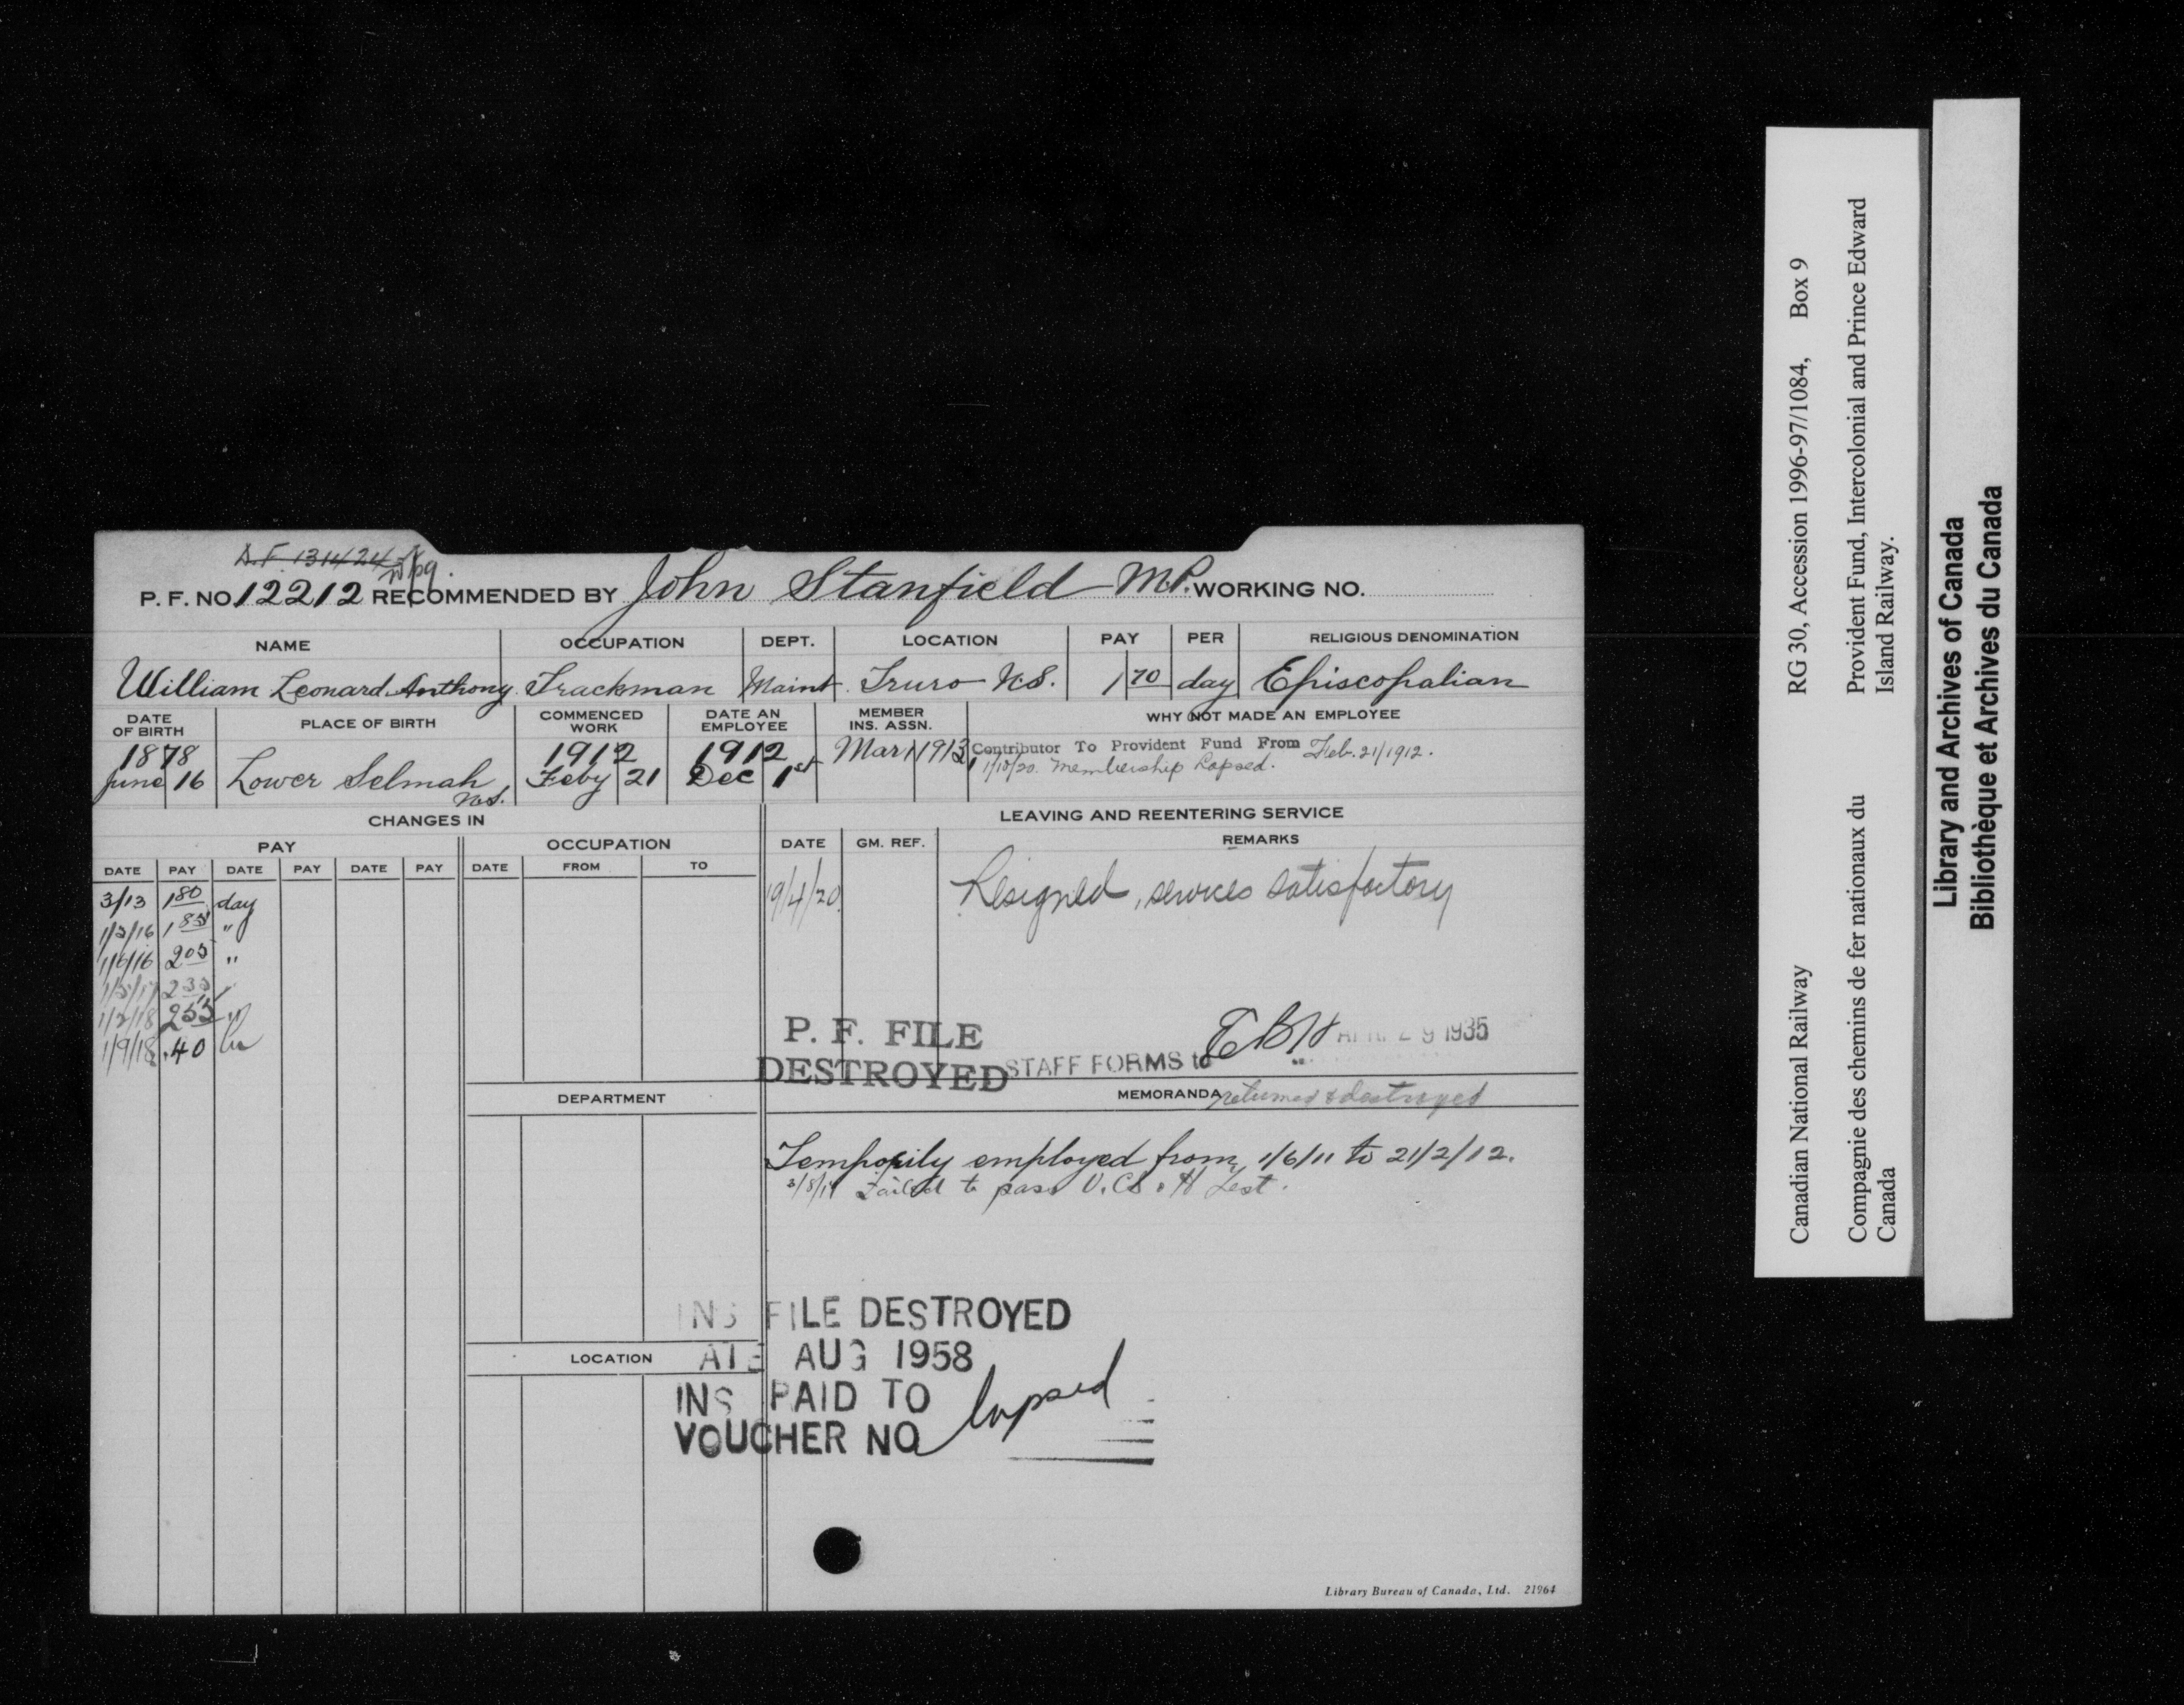 P. F. NO. 12212 RECOMMENDED BY John Stanfield M.P. WORKING NO.
NAME OCCUPATION DEPT. LOCATION PAY PER RELIGIOUS DENOMINATION
William Leonard Anthony. Trackman Maint. Truro N.S. 1 70 day Episcopalian
DATE OF BIRTH PLACE OF BIRTH COMMENCED WORK DATE AN EMPLOYEE MEMBER INS. ASSN. WHY NOT MADE AN EMPLOYEE
1878 1912 1912 Mar 1 1913 Contributor To Provident Fund From Feb. 21/1912.
June 16 Lower Selmah N.S. Feby 21 Dec 1st 1/10/20. Membership Lapsed.
CHANGES IN LEAVING AND REENTERING SERVICE
PAY OCCUPATION DATE GM. REF. REMARKS
DATE PAY DATE PAY DATE PAY DATE FROM TO
3/13 1 80 day
19/4/20. Resigned, services satisfactory
1/6/16 2 05 "
1/9/18 .40
P. F. FILE
DESTROYED
STAFF FORMS to APR 29 1935
DEPARTMENT MEMORANDA returned & destroyed
Temporily employed from 1/6/11 to 21/2/12.
Failed to pass V.CS. & H Test.
INS FILE DESTROYED
LOCATION
ATE AUG 1958
INS PAID TO
VOUCHER NO lapsed
Library Bureau of Canada, Ltd. 21964
Canadian National Railway RG 30, Accession 1996-97/1084, Box 9
Compagnie des chemins de fer nationaux du Provident Fund, Intercolonial and Prince Edward
Canada Island Railway.
Library and Archives of Canada
Bibliothèque et Archives du Canada